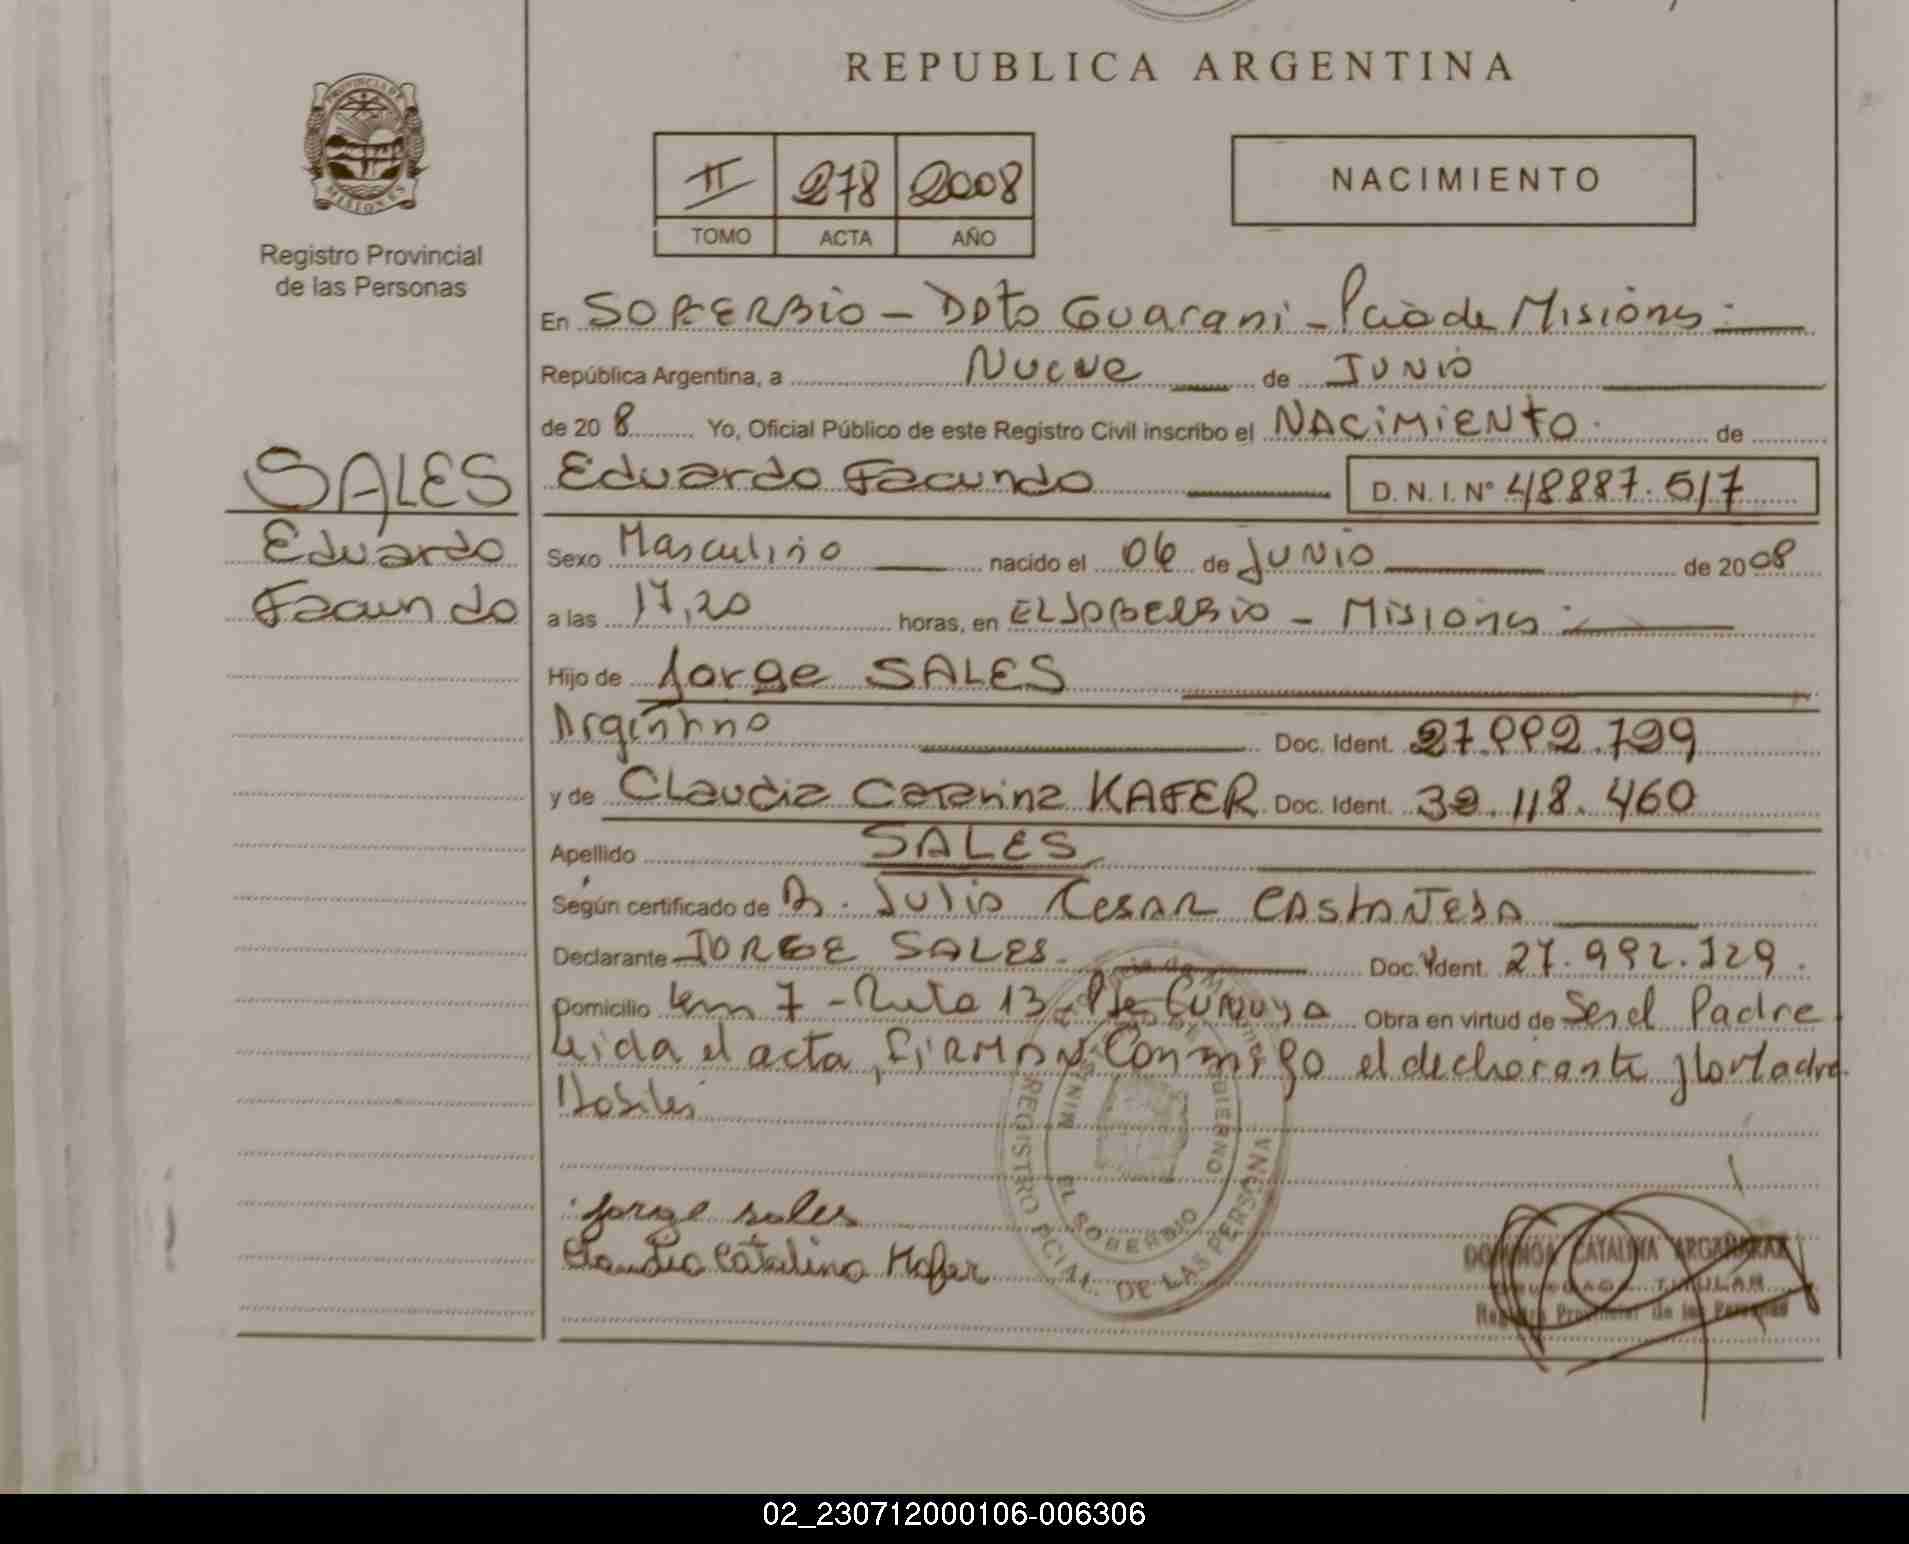 REPUBLICA ARGENTINA
PROVINCIA DE MISIONES
Registro Provincial
de las Personas
II 278 2008
TOMO ACTA AÑO
NACIMIENTO
En SOBERBIO - Dpto Guarani - Pcia de Misiones
República Argentina, a Nueve de JUNIO
de 20 8 Yo, Oficial Público de este Registro Civil inscribo el NACIMIENTO de
SALES
Eduardo
Facundo
Eduardo Facundo D. N. I. Nº 48887.517
Sexo Masculino nacido el 06 de JUNIO de 20 08
a las 17,20 horas, en EL SOBERBIO - Misiones
Hijo de Jorge SALES
Argentino Doc. Ident. 27.992.729
y de Claudia Catarina KAFER Doc. Ident. 118.460
Apellido SALES
Según certificado de Dr. Julio Cesar CASTAÑEDA
Declarante JORGE SALES Doc. Ident. 27.992.129
Domicilio km 7 - Ruta 13 Obra en virtud de Ser el Padre
Leida el acta, FIRMAN Conmigo el declarante
jorge sales
Claudia Catalina Kafer
MINISTERIO DE GOBIERNO
EL SOBERBIO
REGISTRO PCIAL. DE LAS PERSONAS
CATALINA ARGAÑARAZ
TITULAR
Registro Provincial de las Personas
02_230712000106-006306